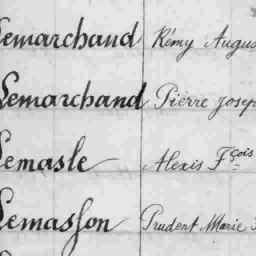 Lemarchand Rémy Augus
Lemarchand Pierre Josep
Lemasle Alexis Fçois
Lemasson Prudent Marie